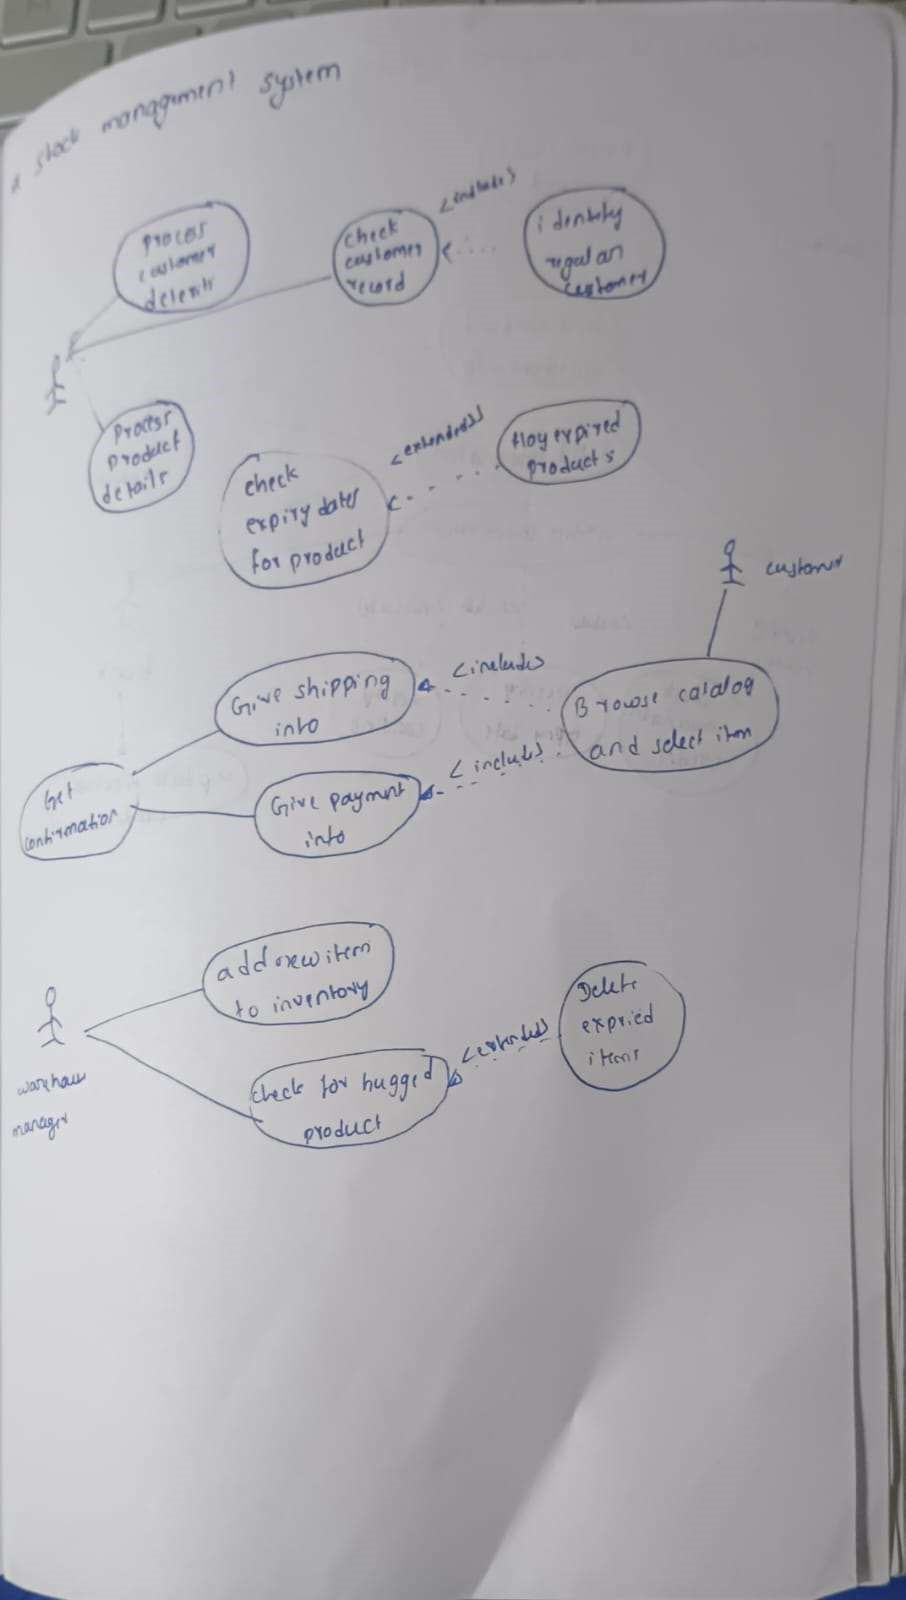 a stock management system
process
customer
deteails
check
customer
record
<include>
identity
regular
customer
process
product
details
check
expiry dates
for product
<extended>>
flag expired
products
customer
Give shipping
into
<include>
Browse catalog
and select item
Get
confirmation
Give payment
into
<include>
add new item
to inventory
warehouse
manager
check for hugged
product
<extended>
Delete
expried
items